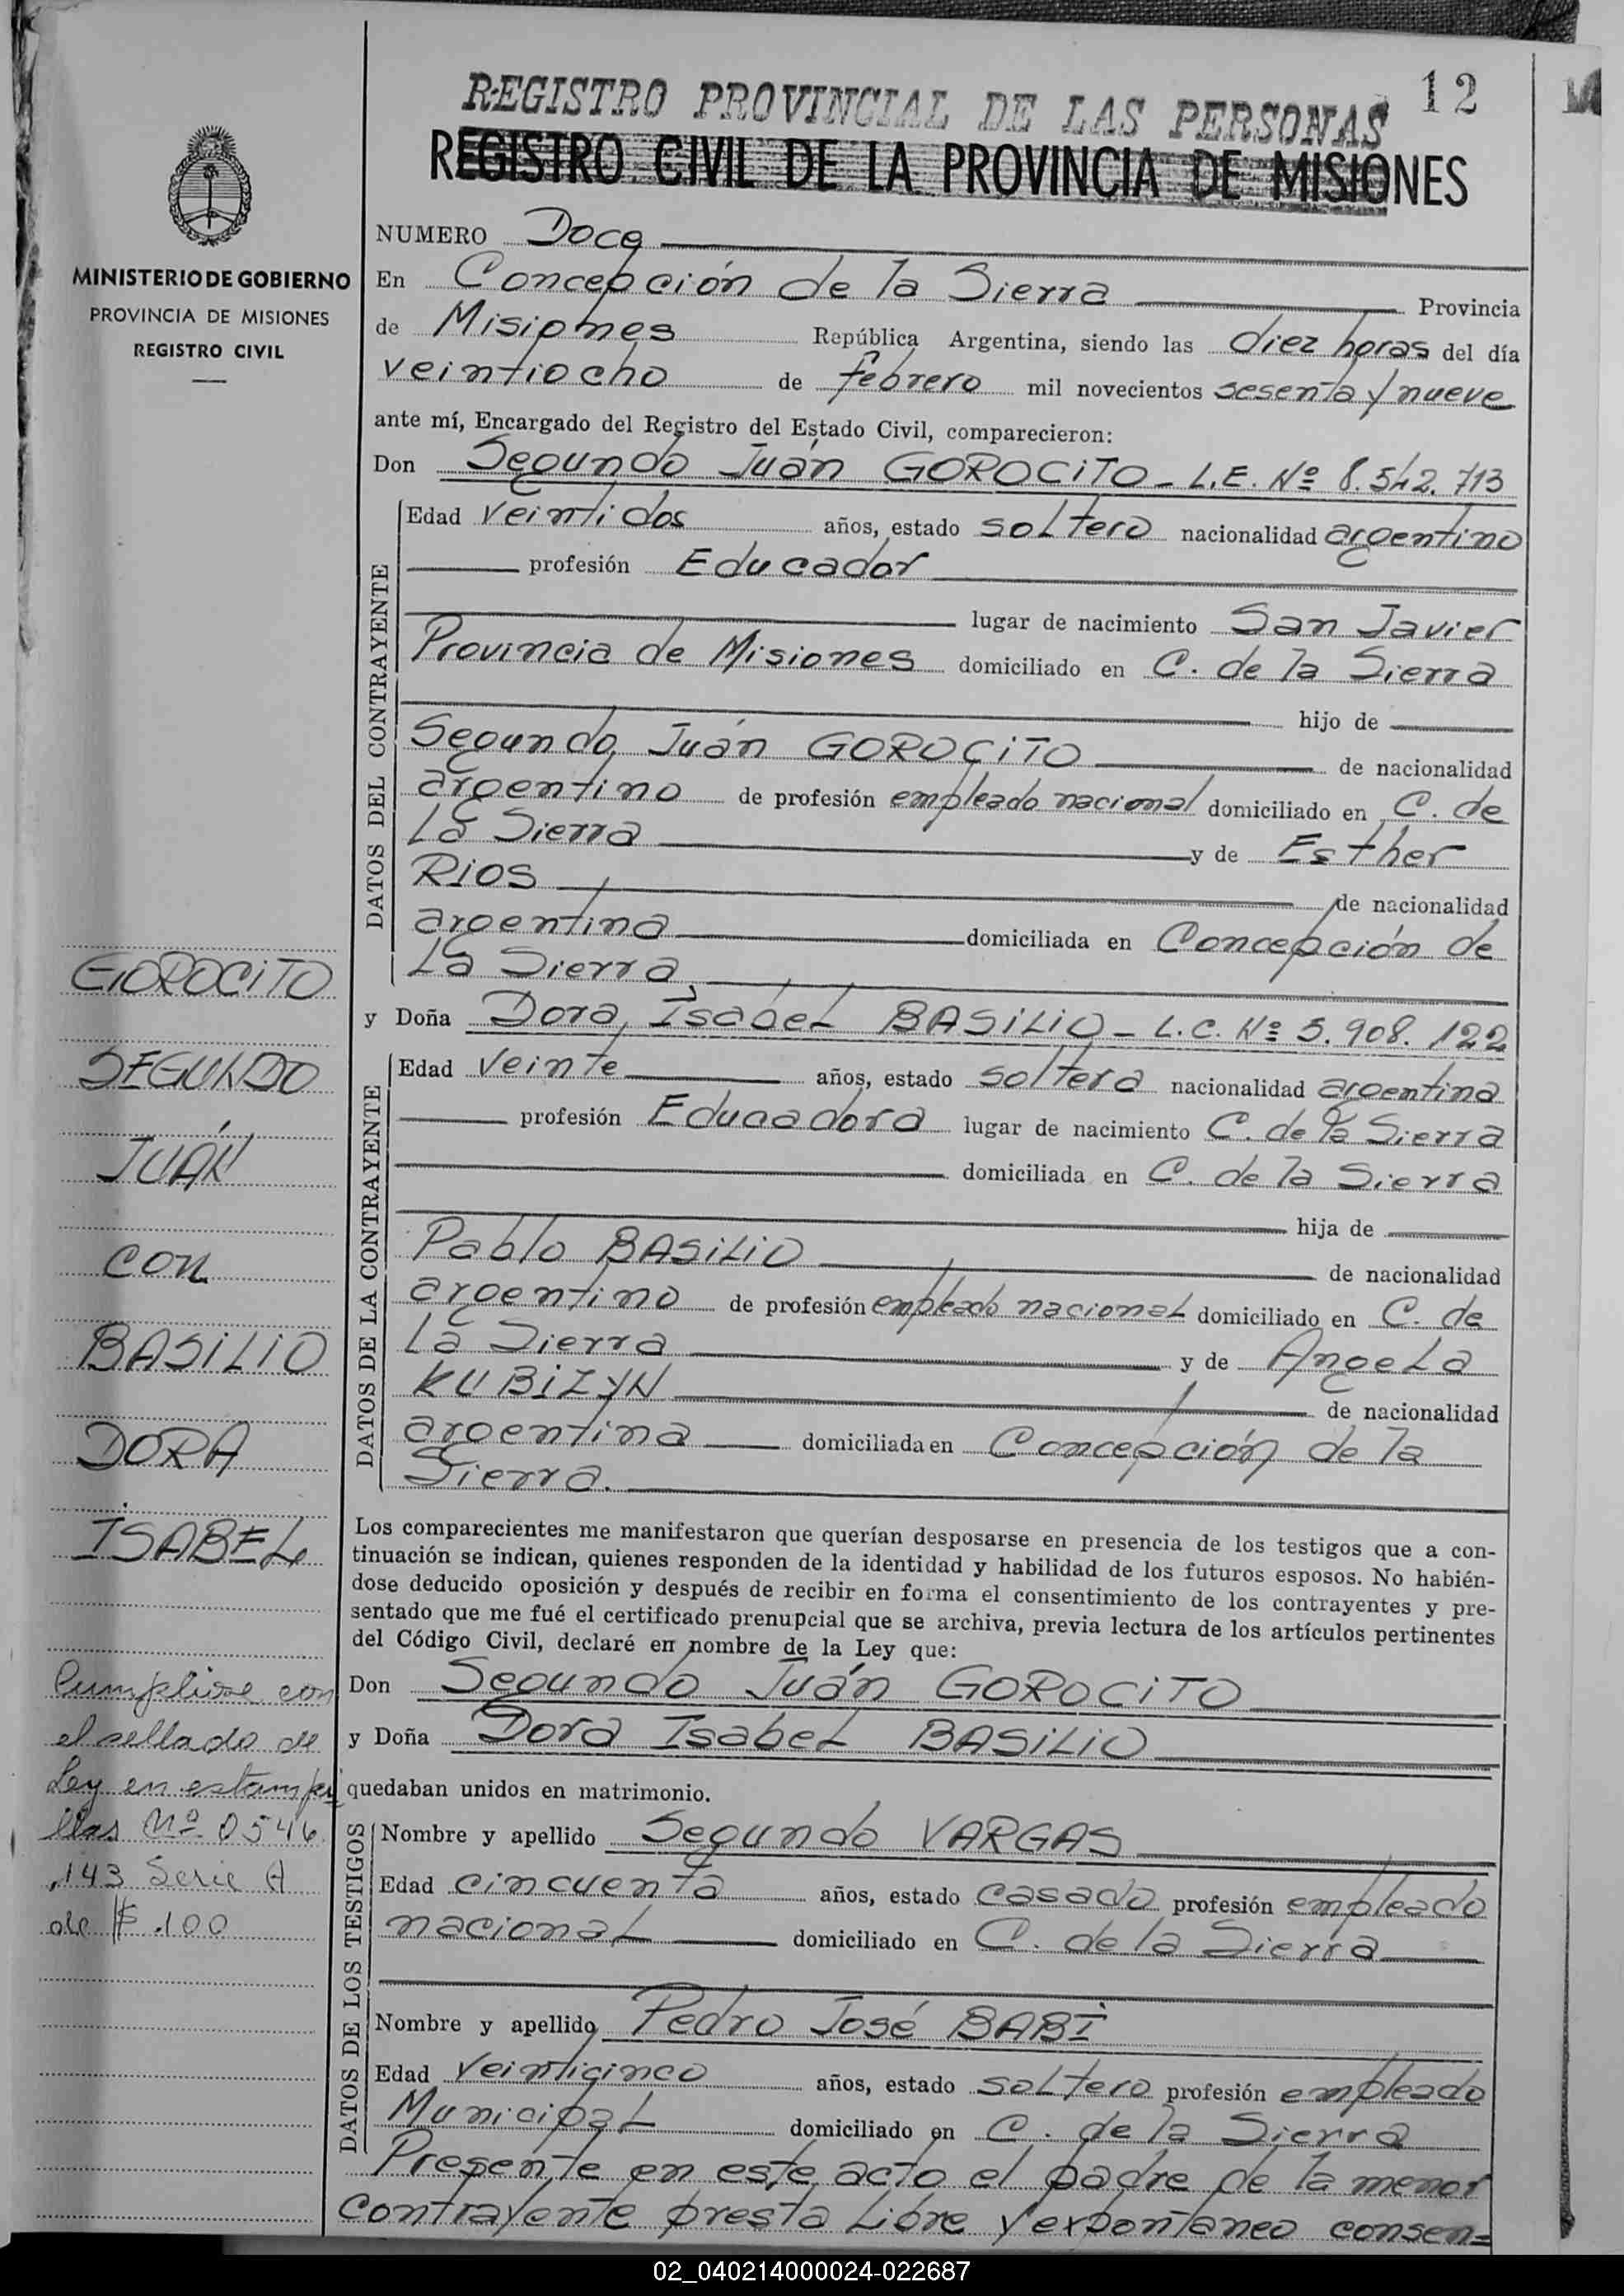 12
REGISTRO PROVINCIAL DE LAS PERSONAS
REGISTRO CIVIL DE LA PROVINCIA DE MISIONES
MINISTERIO DE GOBIERNO
PROVINCIA DE MISIONES
REGISTRO CIVIL
NUMERO Doce
En Concepción de la Sierra Provincia
de Misiones República Argentina, siendo las diez horas del día
veintiocho de febrero mil novecientos sesenta y nueve
ante mí, Encargado del Registro del Estado Civil, comparecieron:
Don Segundo Juán GOROCITO - L.E. Nº 8.542.713
DATOS DEL CONTRAYENTE
Edad veintidos años, estado soltero nacionalidad argentino
profesión Educador
lugar de nacimiento San Javier
Provincia de Misiones domiciliado en C. de la Sierra
hijo de
Segundo Juán GOROCITO de nacionalidad
argentino de profesión empleado nacional domiciliado en C. de
La Sierra y de Esther
RIOS de nacionalidad
argentina domiciliada en Concepción de
La Sierra
y Doña Dora Isabel BASILIO - L.C. Nº 5.908.122
DATOS DE LA CONTRAYENTE
Edad veinte años, estado soltera nacionalidad argentina
profesión Educadora lugar de nacimiento C. de la Sierra
domiciliada en C. de la Sierra
hija de
Pablo BASILIO de nacionalidad
argentino de profesión empleado nacional domiciliado en C. de
La Sierra y de Angela
KUBIZYN de nacionalidad
argentina domiciliada en Concepción de la
Sierra.
Los comparecientes me manifestaron que querían desposarse en presencia de los testigos que a con-
tinuación se indican, quienes responden de la identidad y habilidad de los futuros esposos. No habién-
dose deducido oposición y después de recibir en forma el consentimiento de los contrayentes y pre-
sentado que me fué el certificado prenupcial que se archiva, previa lectura de los artículos pertinentes
del Código Civil, declaré en nombre de la Ley que:
Don Segundo Juán GOROCITO
y Doña Dora Isabel BASILIO
quedaban unidos en matrimonio.
DATOS DE LOS TESTIGOS
Nombre y apellido Segundo VARGAS
Edad cincuenta años, estado casado profesión empleado
nacional domiciliado en C. de la Sierra
Nombre y apellido Pedro José BABI
Edad veinticinco años, estado soltero profesión empleado
Municipal domiciliado en C. de la Sierra
Presente en este acto el padre de la menor
contrayente presta libre y expontaneo consen=
GOROCITO
SEGUNDO
JUÁN
CON
BASILIO
DORA
ISABEL
Cumplióse con
el sellado de
Ley en estampi
llas Nº 0546
.143 Serie A
de $ .100
02_040214000024-022687